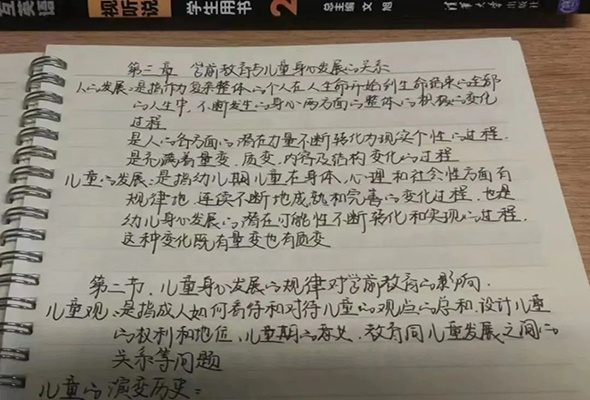 互英语
视听说
学生用书
2
总主编 文旭
清华大学出版
第二章 学前教育与儿童身心发展的关系
人的发展:是指作为复杂整体的个人在从生命开始到生命结束的全部
的人生中,不断发生的身心两方面的整体的积极的变化
过程
是人的各方面的潜在力量不断转化为现实个性的过程.
是充满着量变、质变,内容及结构变化的过程
儿童的发展:是指幼儿期儿童在身体、心理和社会性方面有
规律地、连续不断地成熟和完善的变化过程,也是
幼儿身心发展的潜在可能性不断转化和实现的过程.
这种变化既有量变也有质变
第二节、儿童身心发展的规律对学前教育的影响.
儿童观:是指成人如何看待和对待儿童的观点的总和,设计儿童
的权利和地位、儿童期的意义、教育同儿童发展之间的
关系等问题
儿童的演变历史: